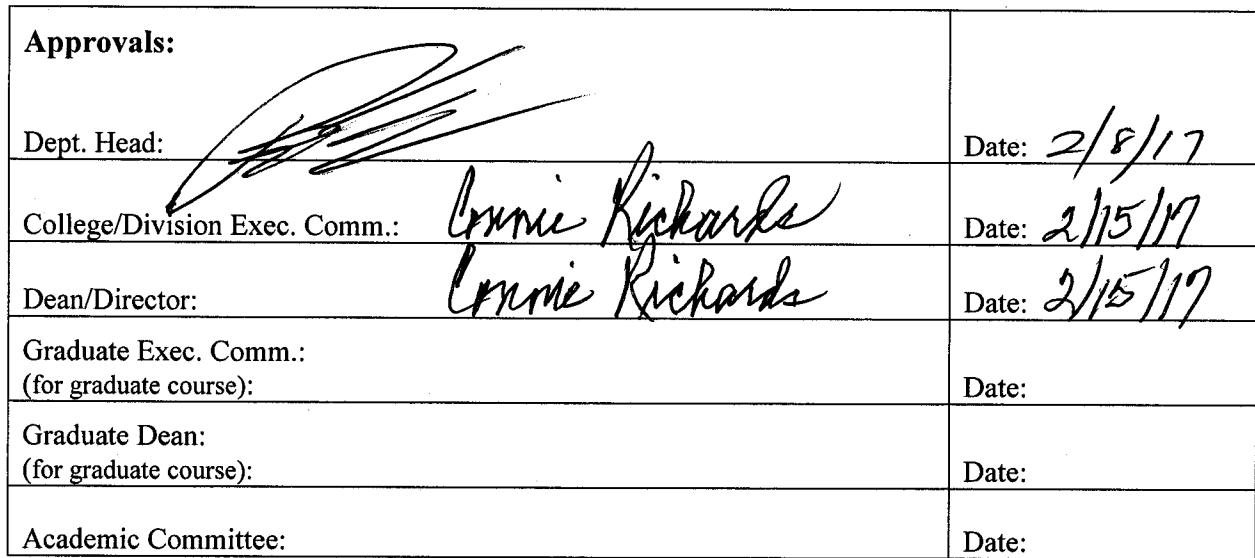 Approvals:
Dept. Head: Date: 2/8/17
College/Division Exec. Comm.: Connie Richards Date: 2/15/17
Dean/Director: Connie Richards Date: 2/15/17
Graduate Exec. Comm.:
(for graduate course): Date:
Graduate Dean:
(for graduate course): Date:
Academic Committee: Date: